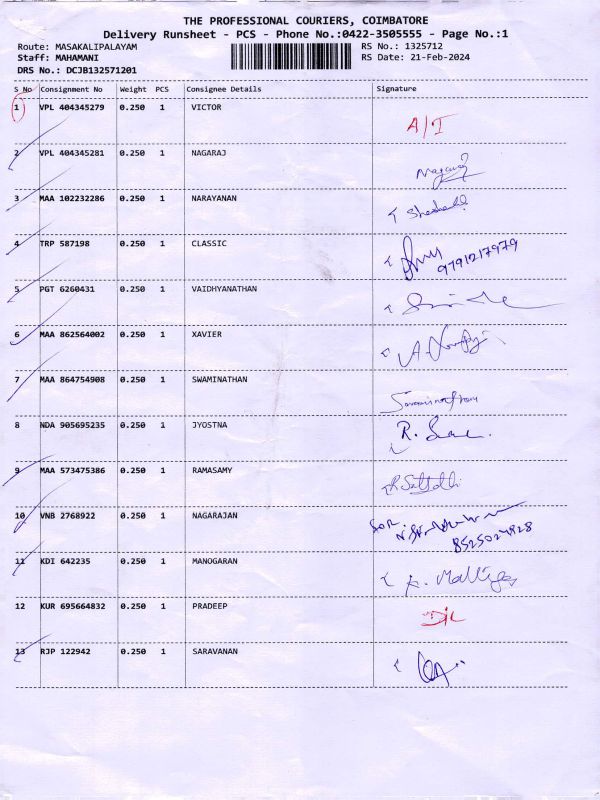 THE PROFESSIONAL COURIERS, COIMBATORE
Delivery Runsheet - PCS - Phone No.:0422-3505555 - Page No.:1
Route: MASAKALIPALAYAM RS No.: 1325712
Staff: MAHAMANI RS Date: 21-Feb-2024
DRS No.: DCJB132571201
S No Consignment No Weight PCS Consignee Details Signature
1 VPL 404345279 0.250 1 VICTOR A/I
2 VPL 404345281 0.250 1 NAGARAJ Nagaraj
3 MAA 102232286 0.250 1 NARAYANAN
4 TRP 587198 0.250 1 CLASSIC
9791217979
5 PGT 6260431 0.250 1 VAIDHYANATHAN
6 MAA 862564002 0.250 1 XAVIER
7 MAA 864754908 0.250 1 SWAMINATHAN Swaminathan
8 NDA 905695235 0.250 1 JYOSTNA
9 MAA 573475386 0.250 1 RAMASAMY
10 VNB 2768922 0.250 1 NAGARAJAN
11 KDI 642235 0.250 1 MANOGARAN
12 KUR 695664832 0.250 1 PRADEEP
13 RJP 122942 0.250 1 SARAVANAN